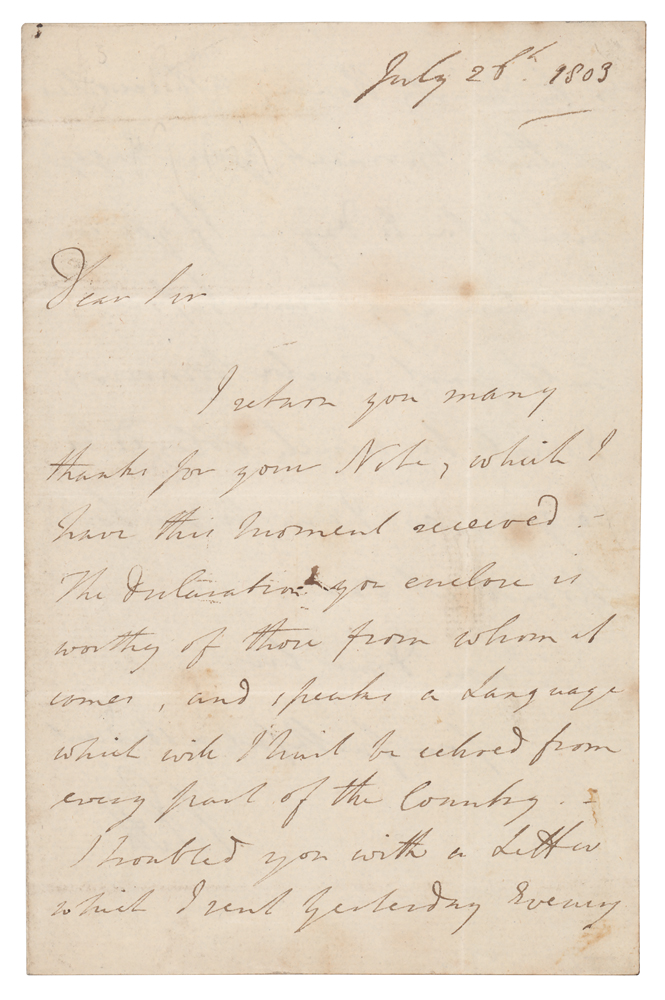 July 26th. 1803
Dear Sir
I return you many
thanks for your Note, which I
have this moment received. -
The Declaration you enclose is
worthy of those from whom it
comes, and speaks a Language
which will I trust be echoed from
every part of the Country. -
I troubled you with a Letter
which I sent Yesterday Evening